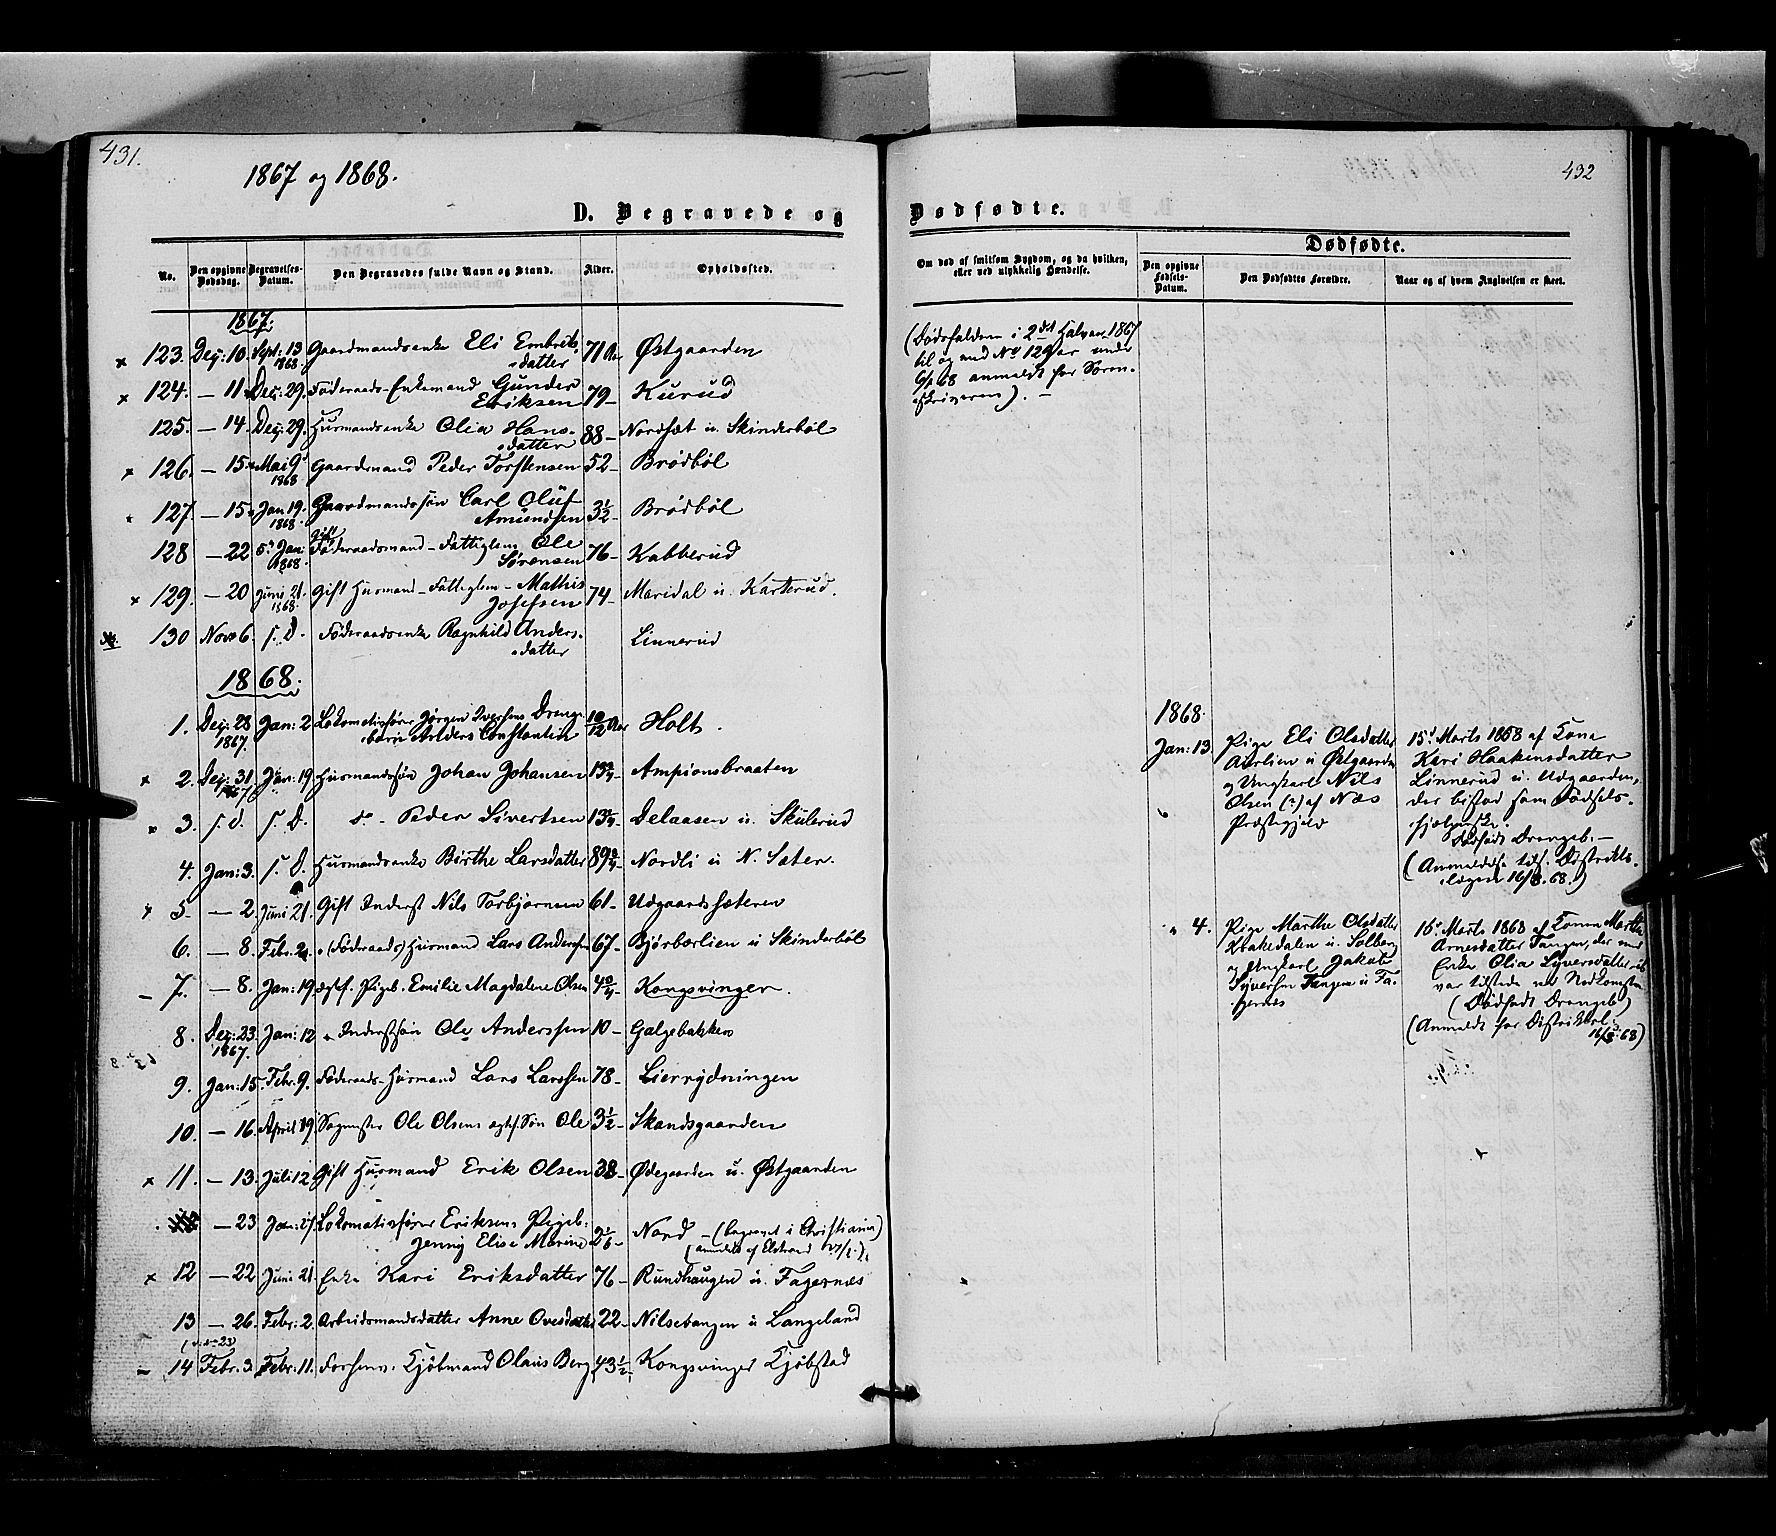 431.
1867 og 1868.
D. Begravede og
No. Den opgivne Dødsdag. Begravelses-Datum. Den Begravedes fulde Navn og Stand. Alder. Opholdssted.
1867.
123. Dez: 10. Sept: 13 1868. Gaardmandsenke Eli Embriks- 71 Aar Østgaarden
datter
124. — 11 Dez: 29. Föderaads-Enkemand Gunder 79— Kurud
Eriksen
125. — 14. Dez: 29. Husmandsenke Olia Hans- 88— Nordsæt u. Skinderböl
datter
126. — 15 Mai 9 1868 Gaardmand Peder Torstensen 52— Brødbøl
127. — 15 Jan 19. 1868. Gaardmandssøn Carl Oluf 3½— Brødbøl
Amundsen
128 — 22 5 Jan: 1868. gift Föderaadsmand — Fattiglem Ole 76— Kabberud
Sörensen
129. — 20 Juni 21. 1868. Gift Husmand — Fattiglem — Mathis 74— Maridal u. Karterud.
Josefsen
130 Nov 6. s. D. Föderaadsenke Ragnhild Anders- Linnerud
datter
1868.
1. Dez: 28 1867. Jan: 2 Lokomotivfører Jørgen Iversens Drenge- 10/12 Aar Holt.
barn Anders Constantin
2. Dez: 31 1867 Jan: 19 Husmandssøn Johan Johansen 13¾— Ampionsbraaten
3. s. d. s. D. do — Peder Sivertsen 13¾— Delaasen u. Skulerud
4. Jan: 3. s. D. Husmandsenke Birthe Larsdatter 89¾ Nordli u N. Sæter.
5— — 2. Juni 21. Gift Inderst Nils Torbjørnsen 61— Udgaardssæteren
6. — 8. Febr. 2. (Föderaads) Husmand Lars Andersen 67— Bjørbærlien u Skinderböl
7. — 8. Jan: 19. ægtef. Pigeb. Emilie Magdalene Olsen Kongsvinger.
8. Dez: 23 1867. Jan: 12 Inderstsön Ole Anderssen 10— Galgebakken
9. Jan: 15 Febr. 9. Föderaads-Husmand Lars Larssen 78— Lierrydningen
10. — 16. April 19. Sagmester Ole Olsens ægtf. Sön Ole 3½— Skandsgaarden
11. — 13. Juli 12 Gift Husmand Erik Olsen 38— Ødegaarden u. Østgaarden
— 23 Jan: 27 Lokomotivfører Eriksens Pigeb: Nord — (begravet i Christiania)
Jenny Elise Marine (anmeldt af Elstrand 27/1.)
12 — 22 Juni 21. Enke Kari Eriksdatter 76— Rundhaugen u. Fagernæs
13 — 26. Febr: 2. Arbeidsmandsdatter Anne Ovesdatter 22— Nilsebangen u Langeland
14 Febr. 3. Febr: 11. Forhenv. Kjöbmand Olaus Berg 43½— Kongsvinger Kjöbstad
432
Dødfødte.
Om død af smitsom Sygdom, og da hvilken, eller ved ulykkelig Hændelse.
Dødfødte.
Den opgivne Fødsels-Datum. Den Dødfødtes Forældre. Naar og af hvem Angivelsen er skeet.
(Dødsfaldene i 2det Halvaar 1867
til og med No 129 er under
6/1 68 anmeldt for Soren-
skriveren). —
1868.
Jan: 13.
Pige Eli Olsdatter
Aurlien u Østgaarden
og Ungkarl Nils
Olsen (?) af Næs
Præstegjeld
15d Marts 1868 af Kone
Kari Haakensdatter
Linnerud u. Udgaarden,
der bistod som Födsels-
hjælperske.
Dödfødt Drengeb. —
(Anmeldelse tils. Distrikts-
lægen 16/3. 68.)
" 4.
Pige Marthe Olsdatter
Krakedalen u. Solberg
og Ungkarl Jakob
Syversen Tangen u Fa-
gernæs
16d Marts 1868 af Konen Marthe
Arnesdatter Tangen, der med
Enke Olia Syversdatter
var tilstede ved Nedkomsten
(Dödfødt Drengeb)
(Anmeldt for Distriktsl.
16/3 68)